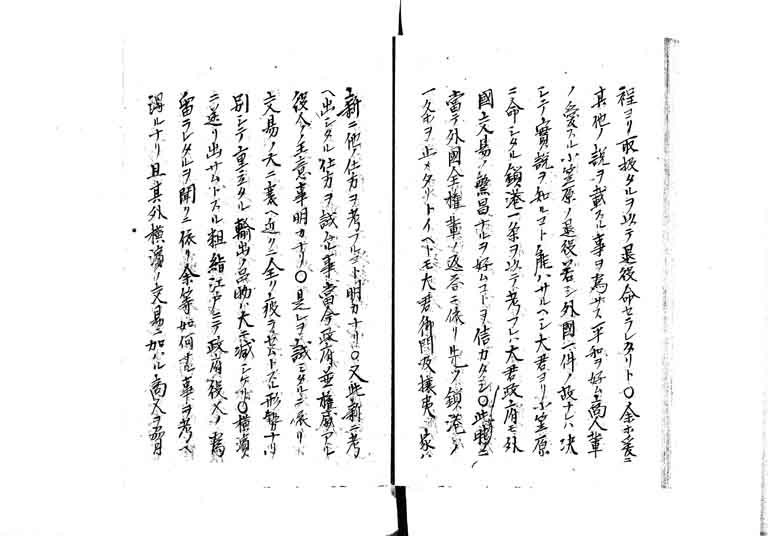 程ヨリ取扱タルヲ以テ退役命セラレタリト〇余ホ爰ニ
其他ノ説ヲ載スル事ヲ為サス平和ヲ好ム商人輩
ノ愛スル小笠原ノ退役若シ外國一件ノ故ナレハ決
シテ實説ヲ知ルコト能ハサルヘシ大君ヨリ小笠原
ニ命シタル鎖港一条ヲ以テ考フレハ大君政府モ外
國交易ノ繁昌ナルヲ好ムコトヲ信カタシ〇此時ニ
當テ外國全權輩ノ返答ニ依リ先ツ鎖港ノ
一条ヲ止メタリトイヘトモ大君御門及攘夷ノ家ハ
新ニ他ノ仕方ヲ考フルコト明カナリ〇又此新ニ考
ヘ出シタル仕方ヲ試ル事當今政府並權威アル
役人ノ主意事明カナリ〇是レヲ試ミタルニ依リ
交易ノ大ニ衰ヘ近クニ全ク疲ラセムトスル形勢ナリ
別シテ重立タル輸出ノ品物ハ大ニ減シケリ〇横濱
ニ送リ出サムトスル組絲江戸ニテ政府役人ノ為
留ラレタルヲ聞クニ依リ余等如何ノ事ヲ考ヘ
得ルナリ且其外横濱ノ交易ニ加ハル商人ヲ